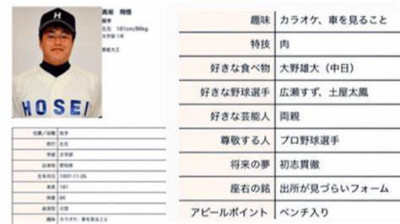 投手
左左 181cm/86kg
文学部 1年
H
HOSEI
位置/役職 投手
左左
学部 文学部
愛知県
生年月日 1997-11-26
身長 181
体重
血液型
趣味 カラオケ、車を見ること
趣味 カラオケ、車を見ること
特技 肉
好きな食べ物 大野雄大（中日）
好きな野球選手 広瀬すず、土屋太鳳
好きな芸能人 両親
尊敬する人 プロ野球選手
将来の夢 初志貫徹
座右の銘 出所が見づらいフォーム
アピールポイント ベンチ入り